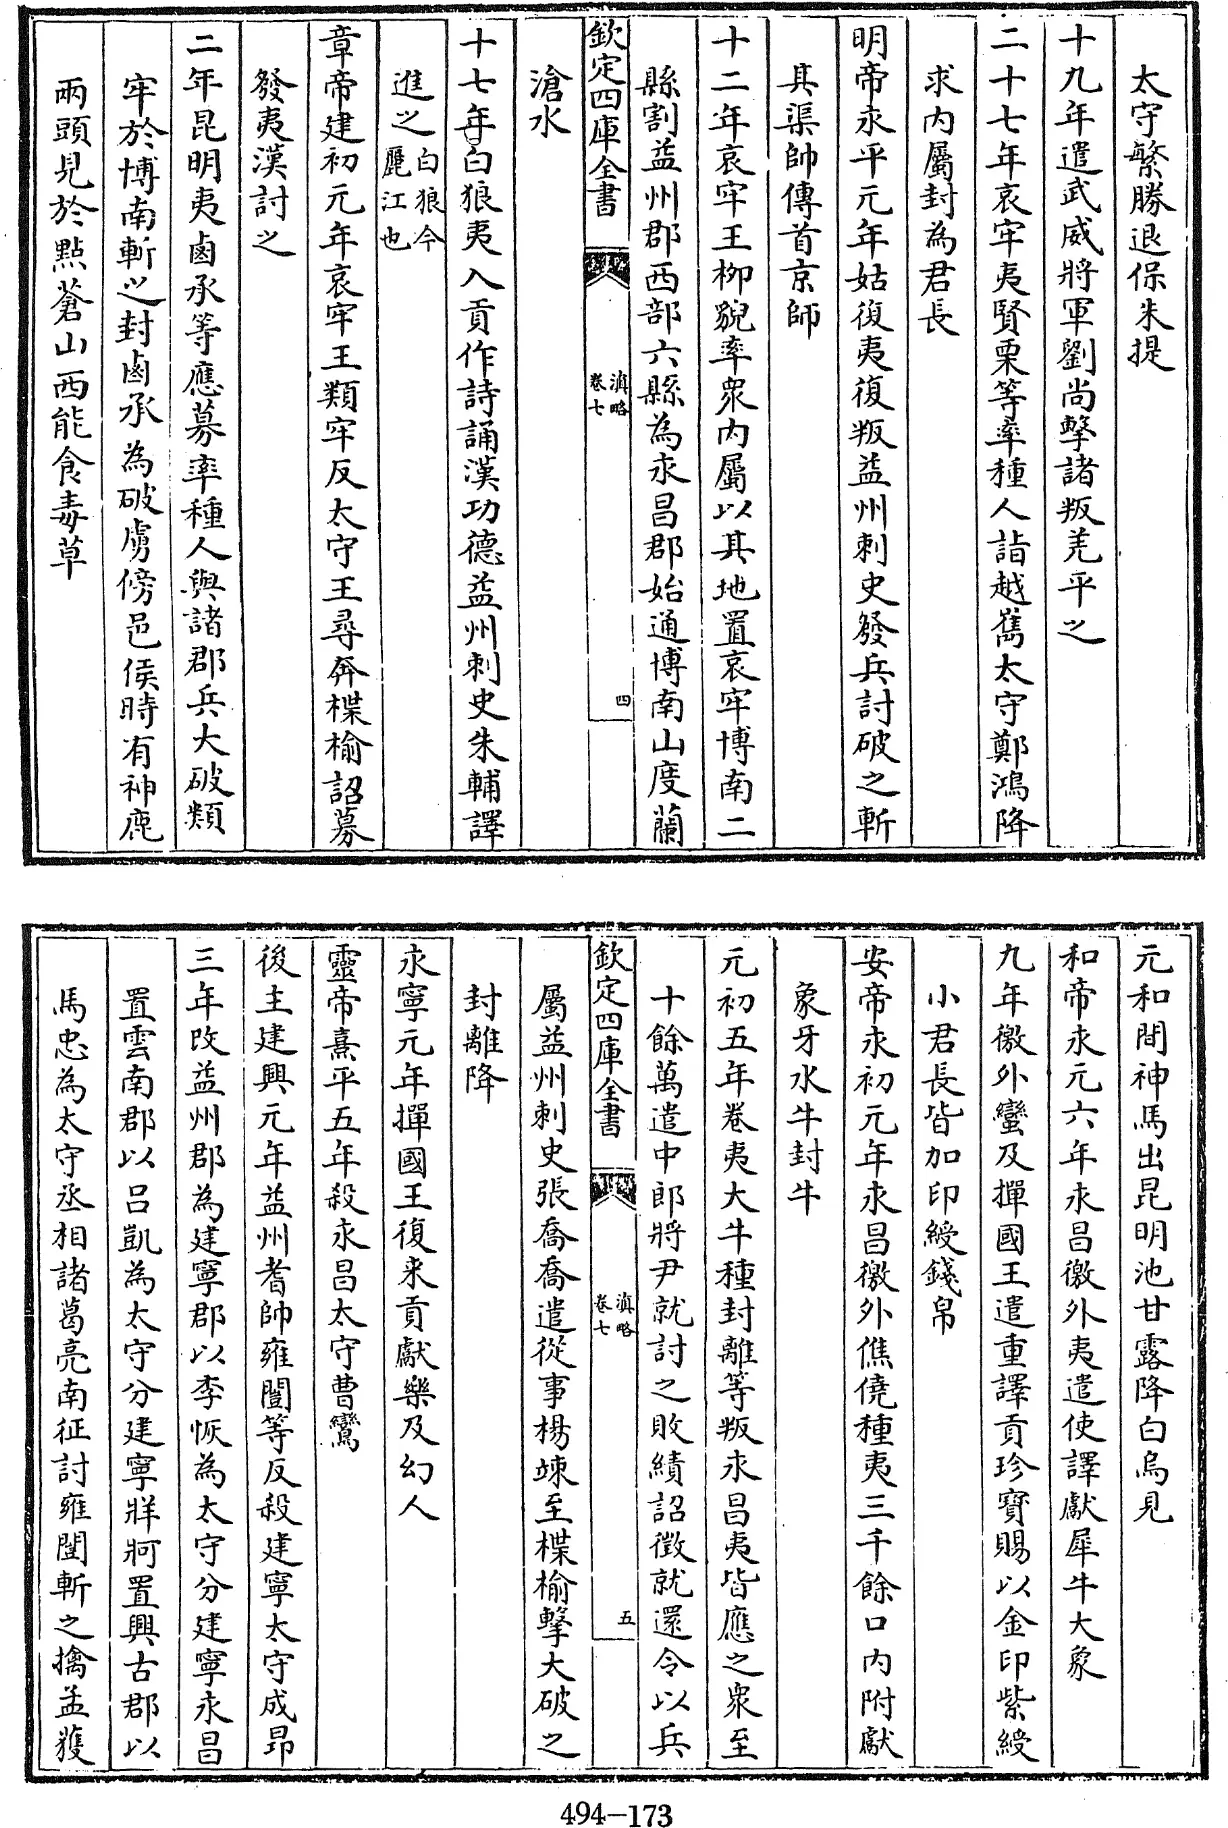 太守繁勝退保朱提
十九年遣武威將軍劉尚擊諸叛羌平之
二十七年哀牢夷賢栗等率種人詣越嶲太守鄭鴻降
求内屬封為君長
明帝永平元年姑復夷復叛益州刺史發兵討破之斬
其渠帥傳首京師
十二年哀牢王柳貌率衆内屬以其地置哀牢博南二
縣割益州郡西部六縣為永昌郡始通博南山度蘭
欽定四庫全書
滇略
卷七
四
滄水
十七年白狼夷入貢作詩誦漢功德益州刺史朱輔譯
進之白狼今
麗江也
章帝建初元年哀牢王類牢反太守王尋奔楪榆詔募
發夷漢討之
二年昆明夷鹵承等應募率種人與諸郡兵大破類
牢於博南斬之封鹵承為破虜傍邑侯時有神鹿
兩頭見於點蒼山西能食毒草
元和間神馬出昆明池甘露降白烏見
和帝永元六年永昌徼外夷遣使譯獻犀牛大象
九年徼外蠻及撣國王遣重譯貢珍寶賜以金印紫綬
小君長皆加印綬錢帛
安帝永初元年永昌徼外僬僥種夷三千餘口内附獻
象牙水牛封牛
元初五年卷夷大牛種封離等叛永昌夷皆應之衆至
十餘萬遣中郎將尹就討之敗績詔徵就還令以兵
欽定四庫全書
滇略
卷七
五
屬益州刺史張喬喬遣從事楊竦至楪榆擊大破之
封離降
永寧元年撣國王復来貢獻樂及幻人
靈帝熹平五年殺永昌太守曹鸞
後主建興元年益州耆帥雍闓等反殺建寧太守成昂
三年改益州郡為建寧郡以李恢為太守分建寧永昌
置雲南郡以吕凱為太守分建寧牂牁置興古郡以
馬忠為太守丞相諸葛亮南征討雍闓斬之擒孟獲
494-173